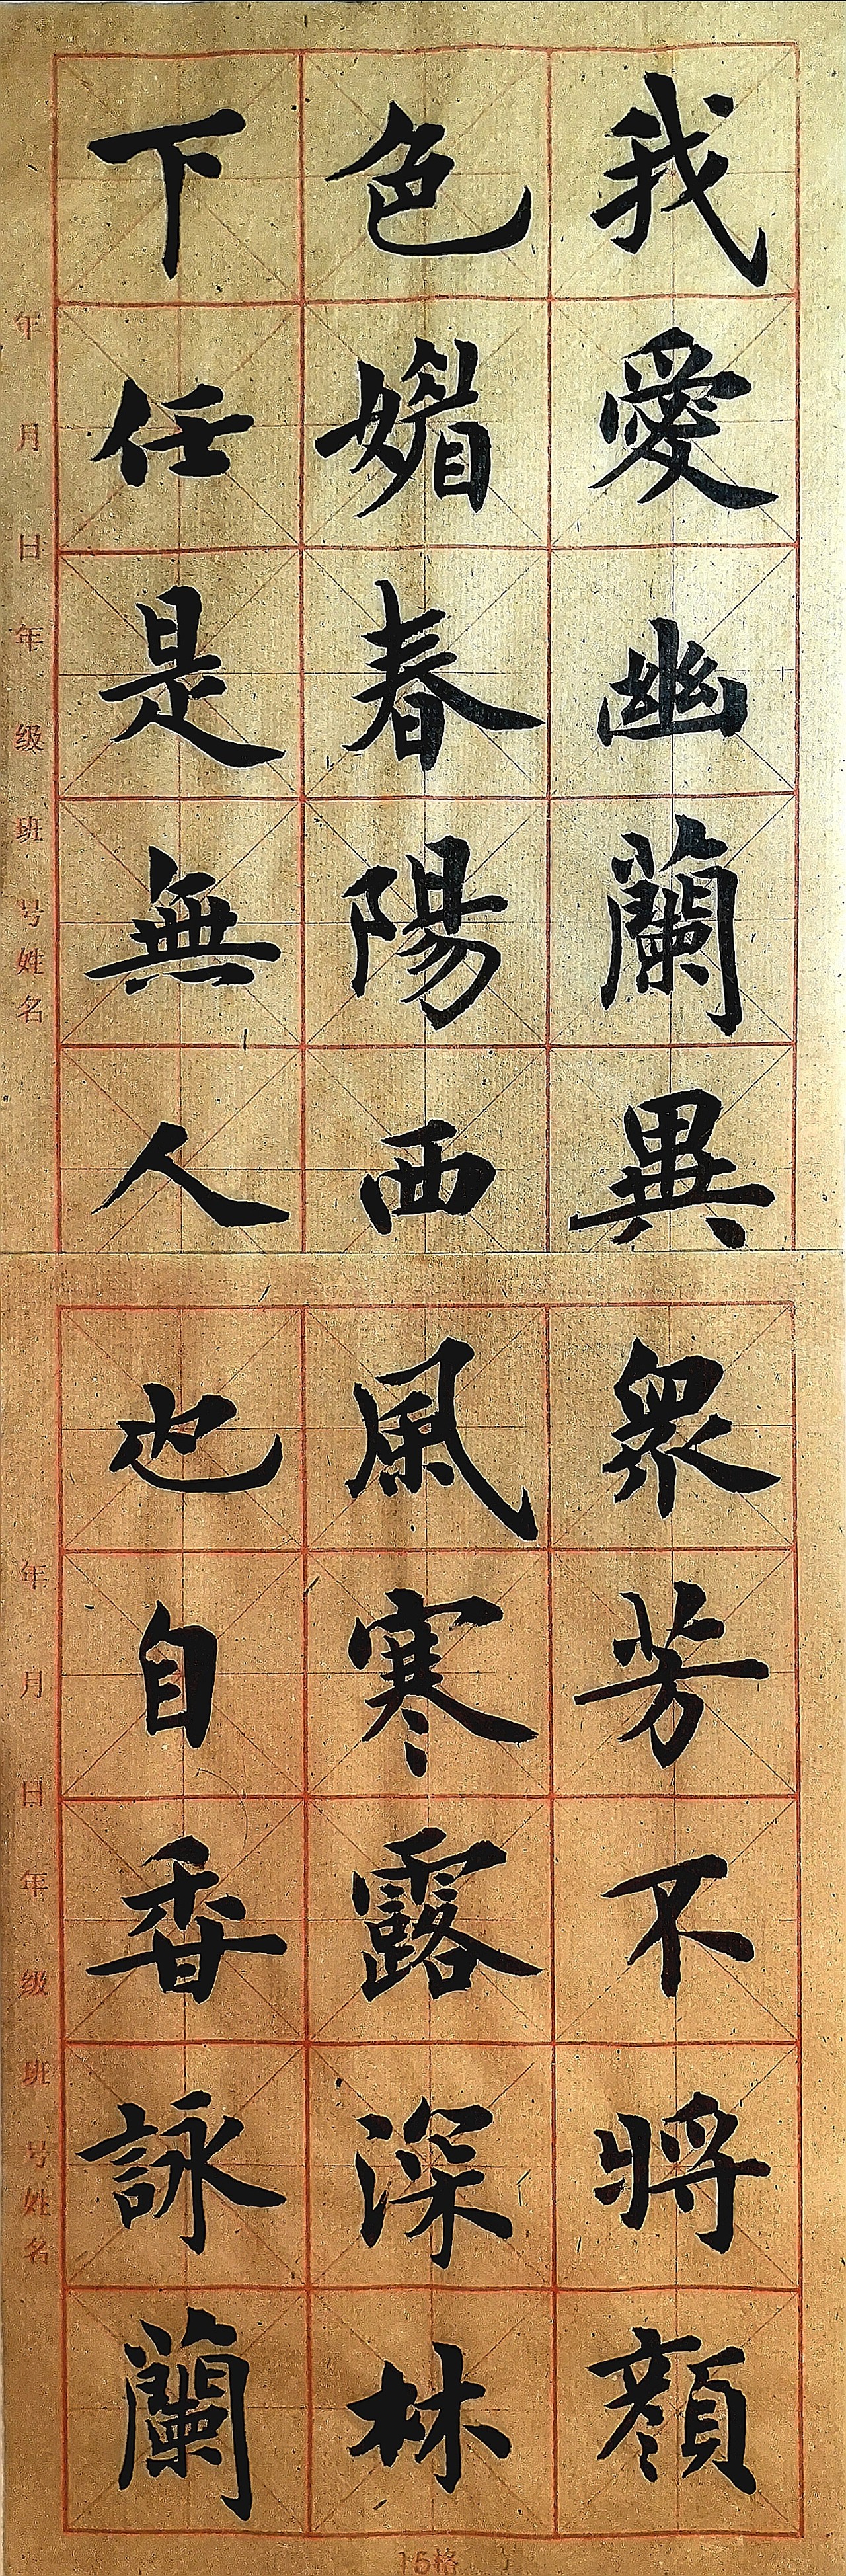 我愛幽蘭異衆芳不將顔
色媚春陽西風寒露深林
下任是無人也自香詠蘭
年 月 日 年 级 班 号 姓名
年 月 日 年 级 班 号 姓名
15格